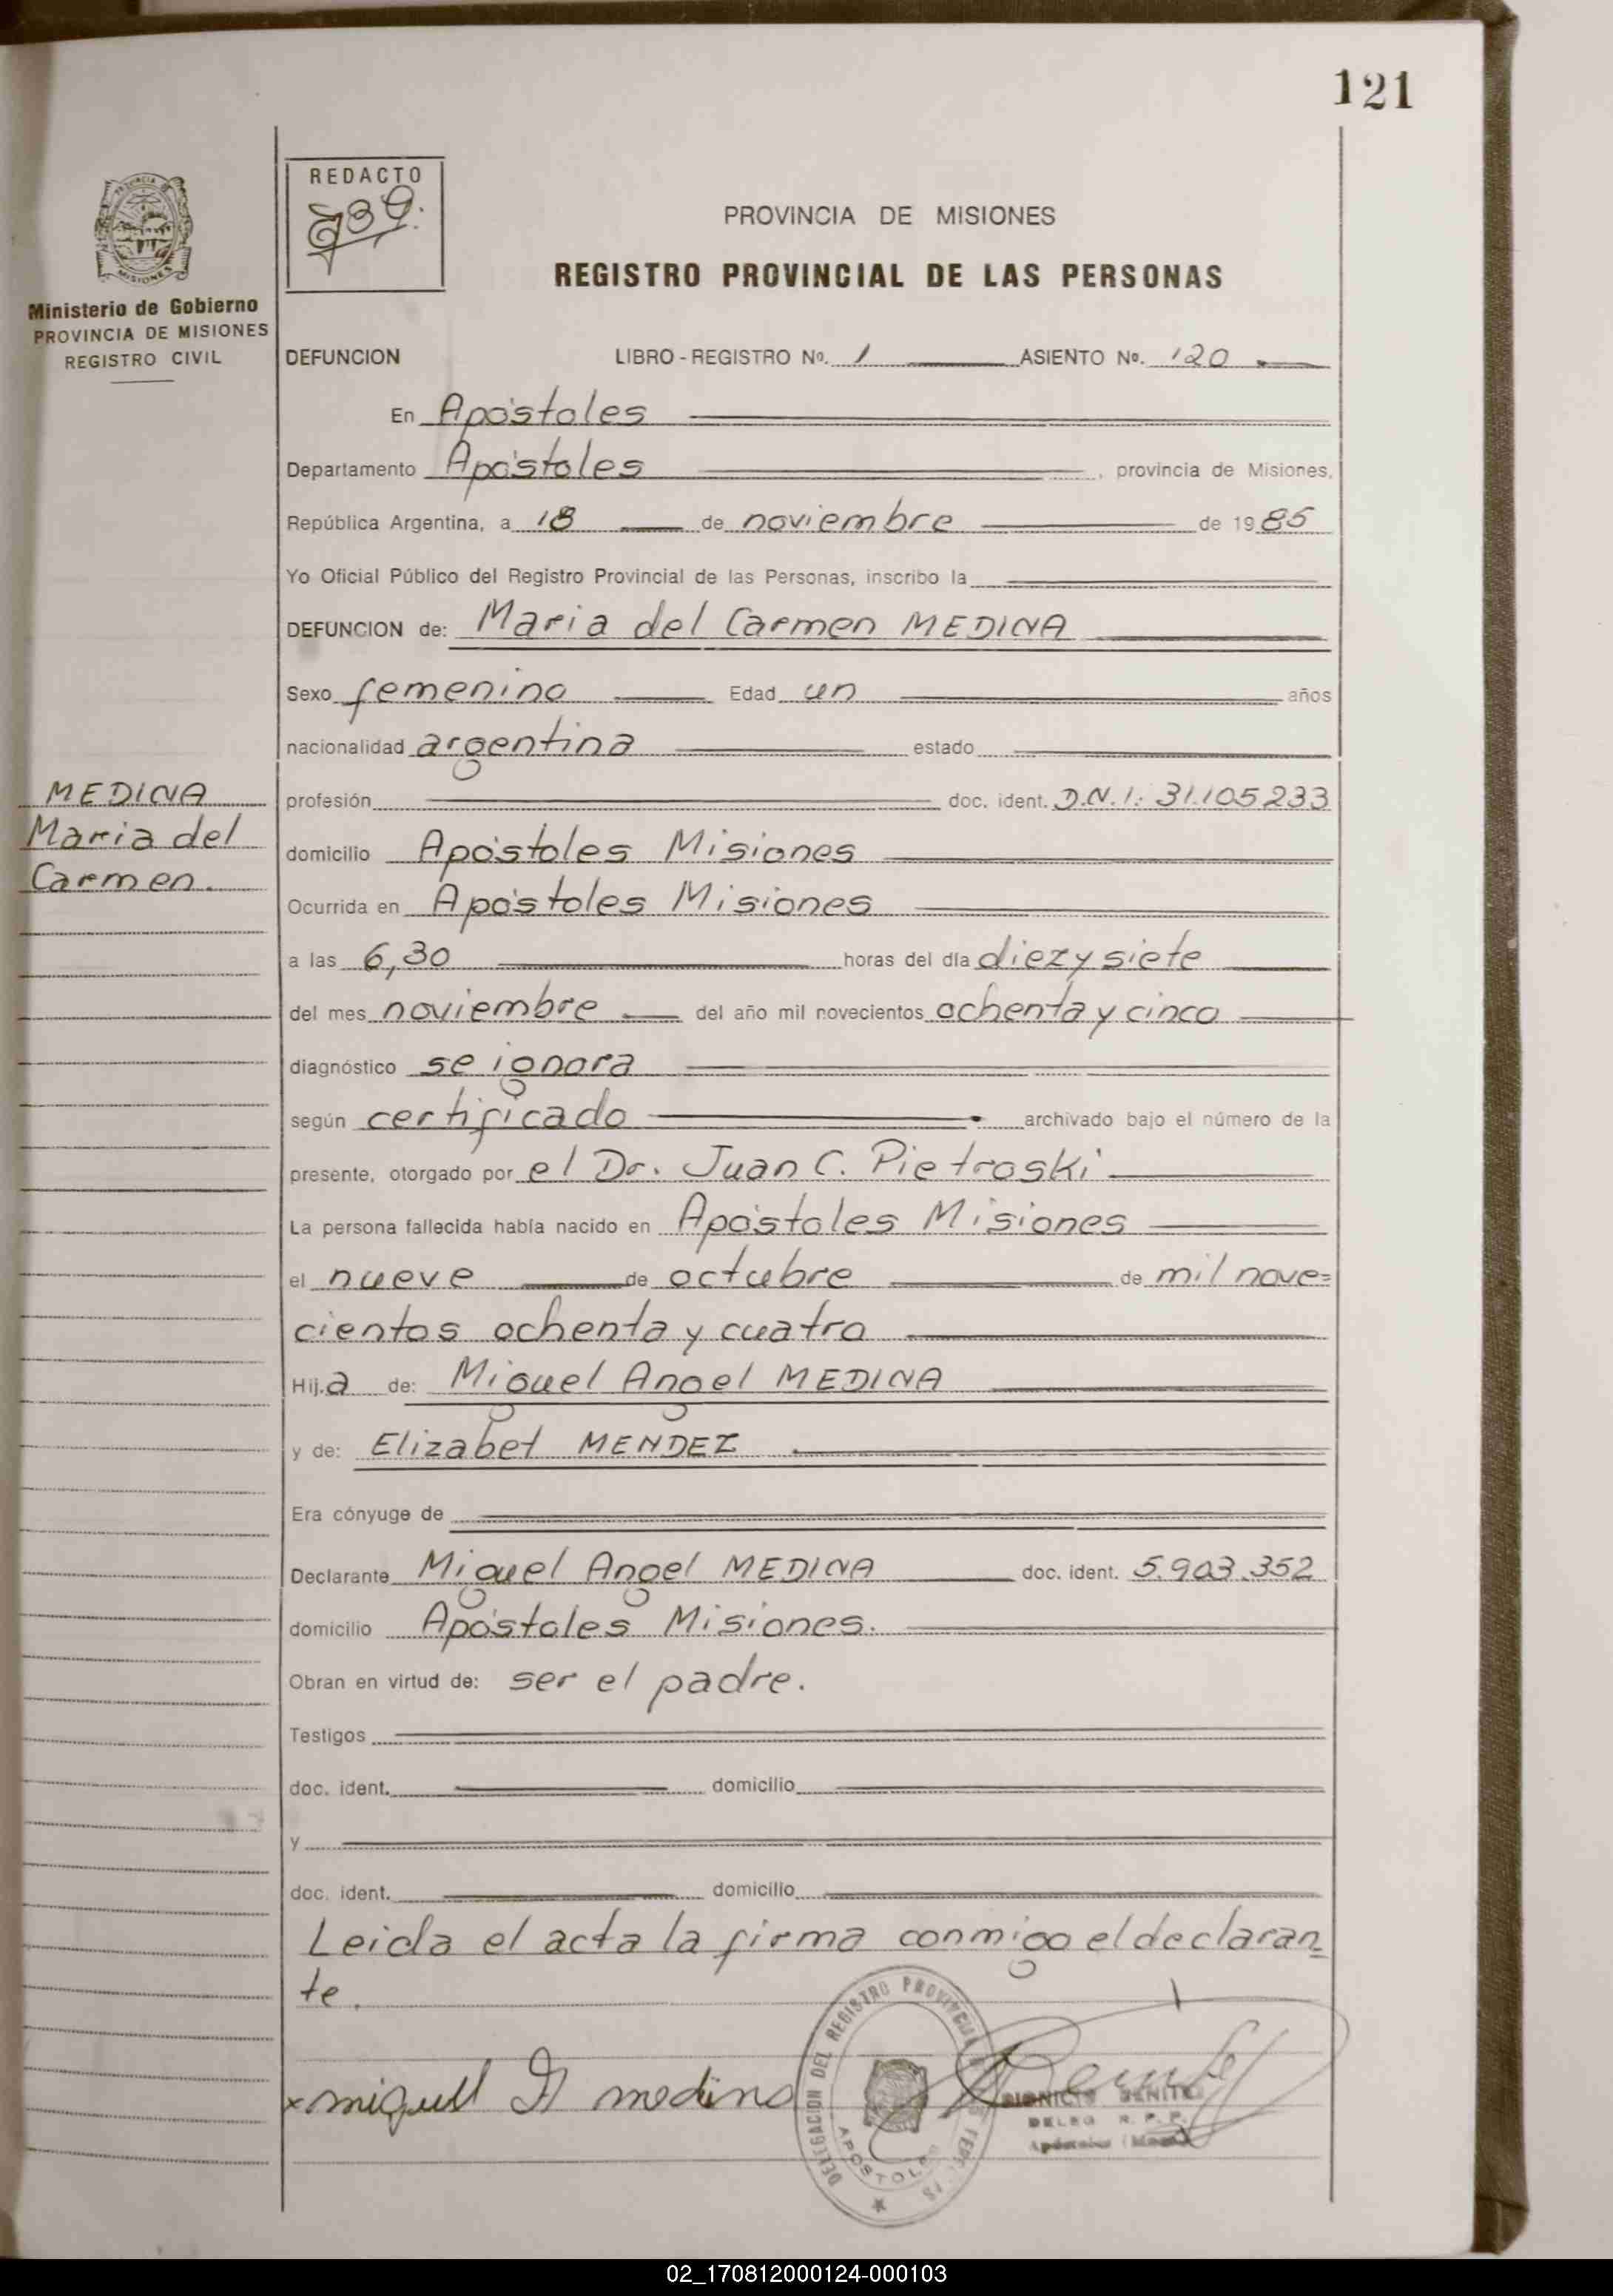 121
REDACTO
PROVINCIA DE MISIONES
REGISTRO PROVINCIAL DE LAS PERSONAS
Ministerio de Gobierno
PROVINCIA DE MISIONES
REGISTRO CIVIL
DEFUNCION LIBRO - REGISTRO Nº. 1 ASIENTO Nº. 120
En Apóstoles
Departamento Apóstoles, provincia de Misiones,
República Argentina, a 18 de noviembre de 1985
Yo Oficial Público del Registro Provincial de las Personas, inscribo la
DEFUNCION de: Maria del Carmen MEDINA
Sexo femenino Edad un años
nacionalidad argentina estado
MEDINA
Maria del
Carmen.
profesión doc. ident. D.N.I. 31.105.233
domicilio Apóstoles Misiones
Ocurrida en Apóstoles Misiones
a las 6,30 horas del día diez y siete
del mes noviembre del año mil novecientos ochenta y cinco
diagnóstico se ignora
según certificado archivado bajo el número de la
presente, otorgado por el Dr. Juan C. Pietroski
La persona fallecida había nacido en Apóstoles Misiones
el nueve de octubre de mil nove=
cientos ochenta y cuatro
Hija de: Miguel Angel MEDINA
y de: Elizabet MENDEZ
Era cónyuge de
Declarante Miguel Angel MEDINA doc. ident. 5.903.352
domicilio Apóstoles Misiones.
Obran en virtud de: ser el padre.
Testigos
doc. ident. domicilio
y
doc. ident. domicilio
Leida el acta la firma conmigo el declaran=
te.
x miguel A medina
DELEGACION DEL REGISTRO PROVINCIAL
APOSTOLES
DELEG R. P. P.
02_170812000124-000103